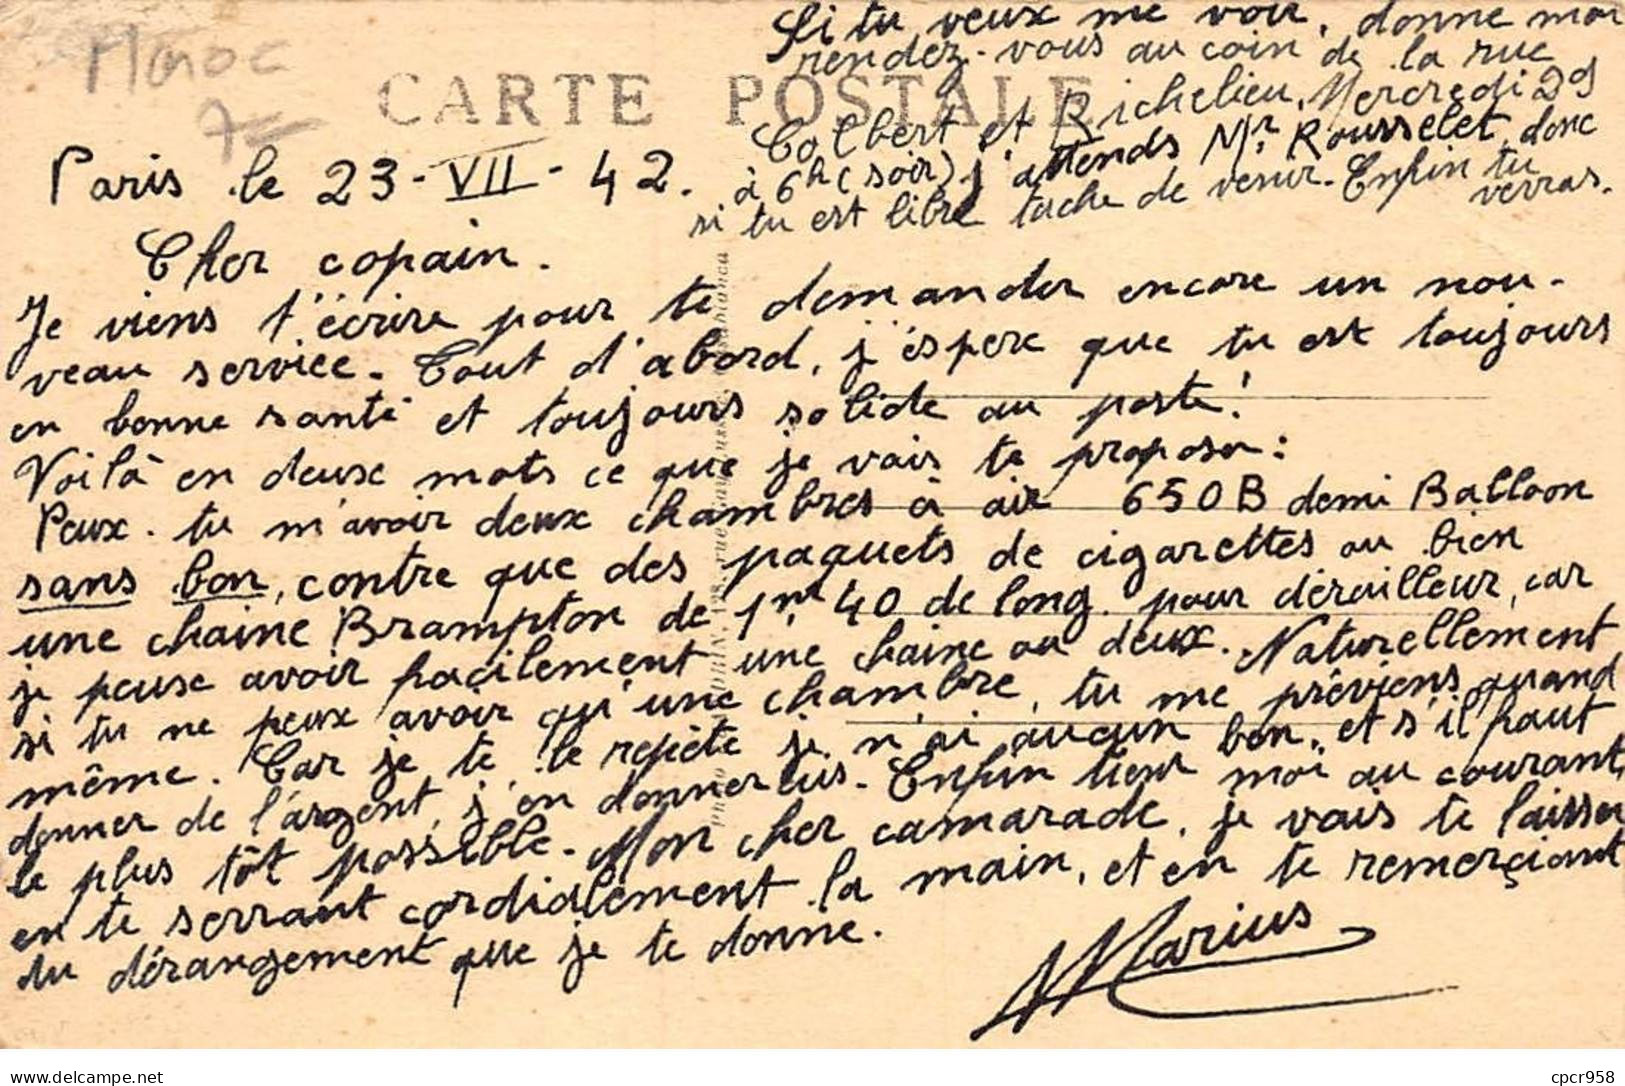 Maroc
7=
CARTE POSTALE
Si tu veux me voir, donne moi
rendez-vous au coin de la rue
Colbert et Richelieu, Mercredi 29
à 6h (soir) j'attends Mr. Rousselet, donc
si tu est libre tache de venir. Enfin tu
verras.
Paris le 23-VII-42.
Cher copain.
Je viens t'écrire pour te demander encore un nou-
veau service. Tout d'abord, j'éspere que tu est toujours
en bonne santé et toujours solide au poste!
Voilà en deux mots ce que je vais te proposer:
Peux-tu m'avoir deux chambres à air 650B demi Balloon
sans bon, contre que des paquets de cigarettes ou bien
une chaine Brampton de 1m 40 de long pour dérailleur, car
je peux avoir facilement une chaine ou deux. Naturellement
si tu ne peux avoir qu'une chambre, tu me préviens quand
même. Car je te le repète je n'ai aucun bon, et s'il faut
donner de l'argent, j'en donnerais. Enfin tient moi au courant
le plus tôt possible. Mon cher camarade, je vais te laisser
en te serrant cordialement la main, et en te remerçiant
du dérangement que je te donne.
Marius
delcampe.net
cpcr958